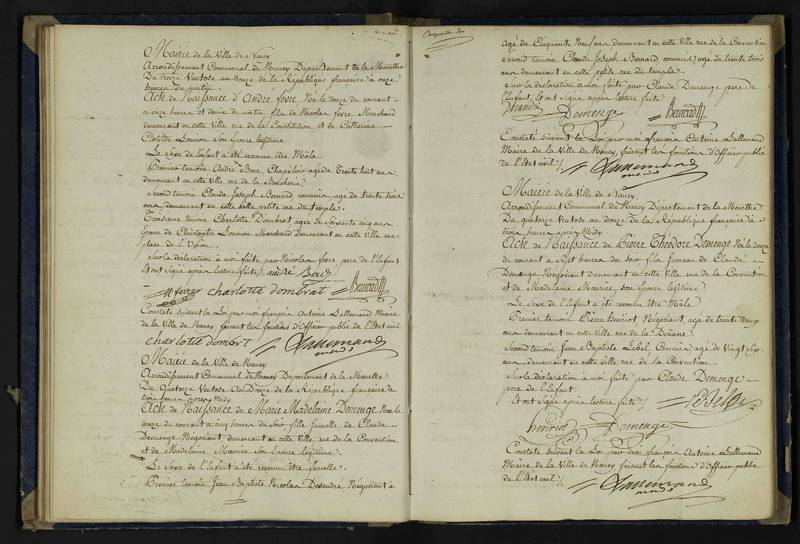 Mairie de la Ville de Nancy
Arrondissement Communal de Nancy Département de la Meurthe
Du treize Ventose an douze de la République française à onze
heures du matin
Acte de Naissance d'André fevre Né le douze du courant
a onze heures et demie du matin fils de Nicolas fevre Marchand
demeurant en cette Ville rue de la Constitution et de Catherine
Clotilde Louvion son Epouse légitime
Le Sexe de l'Enfant a été reconnu être Mâle
Premier temoin André Chapelier agé de Trente huit ans
demeurant en cette Ville rue de la Boucherie
Second temoin Claude Joseph Bernard commis agé de trente trois
ans demeurant en cette Ville petite rue du temple
Troisieme temoin Charlotte Dombrot agée de Soixante cinq ans
Epouse de Christophe Louvion Marchand demeurant en cette Ville
place de l'Union
Sur la déclaration à moi faite par Nicolas fevre pere de l'Enfant
Et ont signé après lecture faite andré
N fevre charlotte dombrat Bernard
Constaté suivant la Loi par moi françois Antoine Lallemand Maire
de la Ville de Nancy faisant les fonctions d'Officier public de l'Etat civil
charlotte dombrt Lallemand
Mairie de la Ville de Nancy
Arrondissement Communal de Nancy Département de la Meurthe
Du Quatorze Ventose an Douze de la République française à
trois heures après Midy
Acte de Naissance de Marie Madelaine Demenge Née le
douze du courant a cinq heures du Soir fille Jumelle de Claude
Demenge Négociant demeurant en cette Ville rue de la Convention
et de Madelaine Maurice son Epouse légitime
Le Sexe de l'Enfant a été reconnu être femelle
Premier temoin Jean Baptiste Nicolas Négociant
Cinquante Six
agé de Cinquante ans demeurant en cette Ville rue de la Convention
Second temoin Claude Joseph Bernard commis agé de trente trois
ans demeurant en cette petite rue du temple
Sur la déclaration à moi faite par Claude Demenge pere de
l'Enfant Et ont signé après lecture faite
Demenge Bernard
Constaté suivant la Loi par moi françois Antoine Lallemand
Maire de la Ville de Nancy faisant les fonctions d'Officier public
de l'Etat civil Lallemand
Mairie de la Ville de Nancy
Arrondissement Communal de Nancy Département de la Meurthe
Du quatorze Ventose an douze de la République française à
trois heures après Midy
Acte de Naissance de Pierre Théodore Demenge Né le douze
du courant a Sept heures du Soir fils Jumeau de Claude
Demenge Négociant demeurant en cette Ville rue de la Convention
et de Madelaine Maurice son Epouse légitime
Le Sexe de l'Enfant a été reconnu être Mâle
Premier temoin Pierre Henriot Négociant agé de trente deux
ans demeurant en cette Ville rue de la Douane
Second temoin Jean Baptiste Lebel agé de Vingt Six
ans demeurant en cette Ville rue de la Convention
Sur la déclaration à moi faite par Claude Demenge
pere de l'Enfant
Et ont signé après lecture faite
henriot Demenge
Constaté suivant la Loi par moi françois Antoine Lallemand
Maire de la Ville de Nancy faisant les fonctions d'Officier public
de l'Etat civil Lallemand